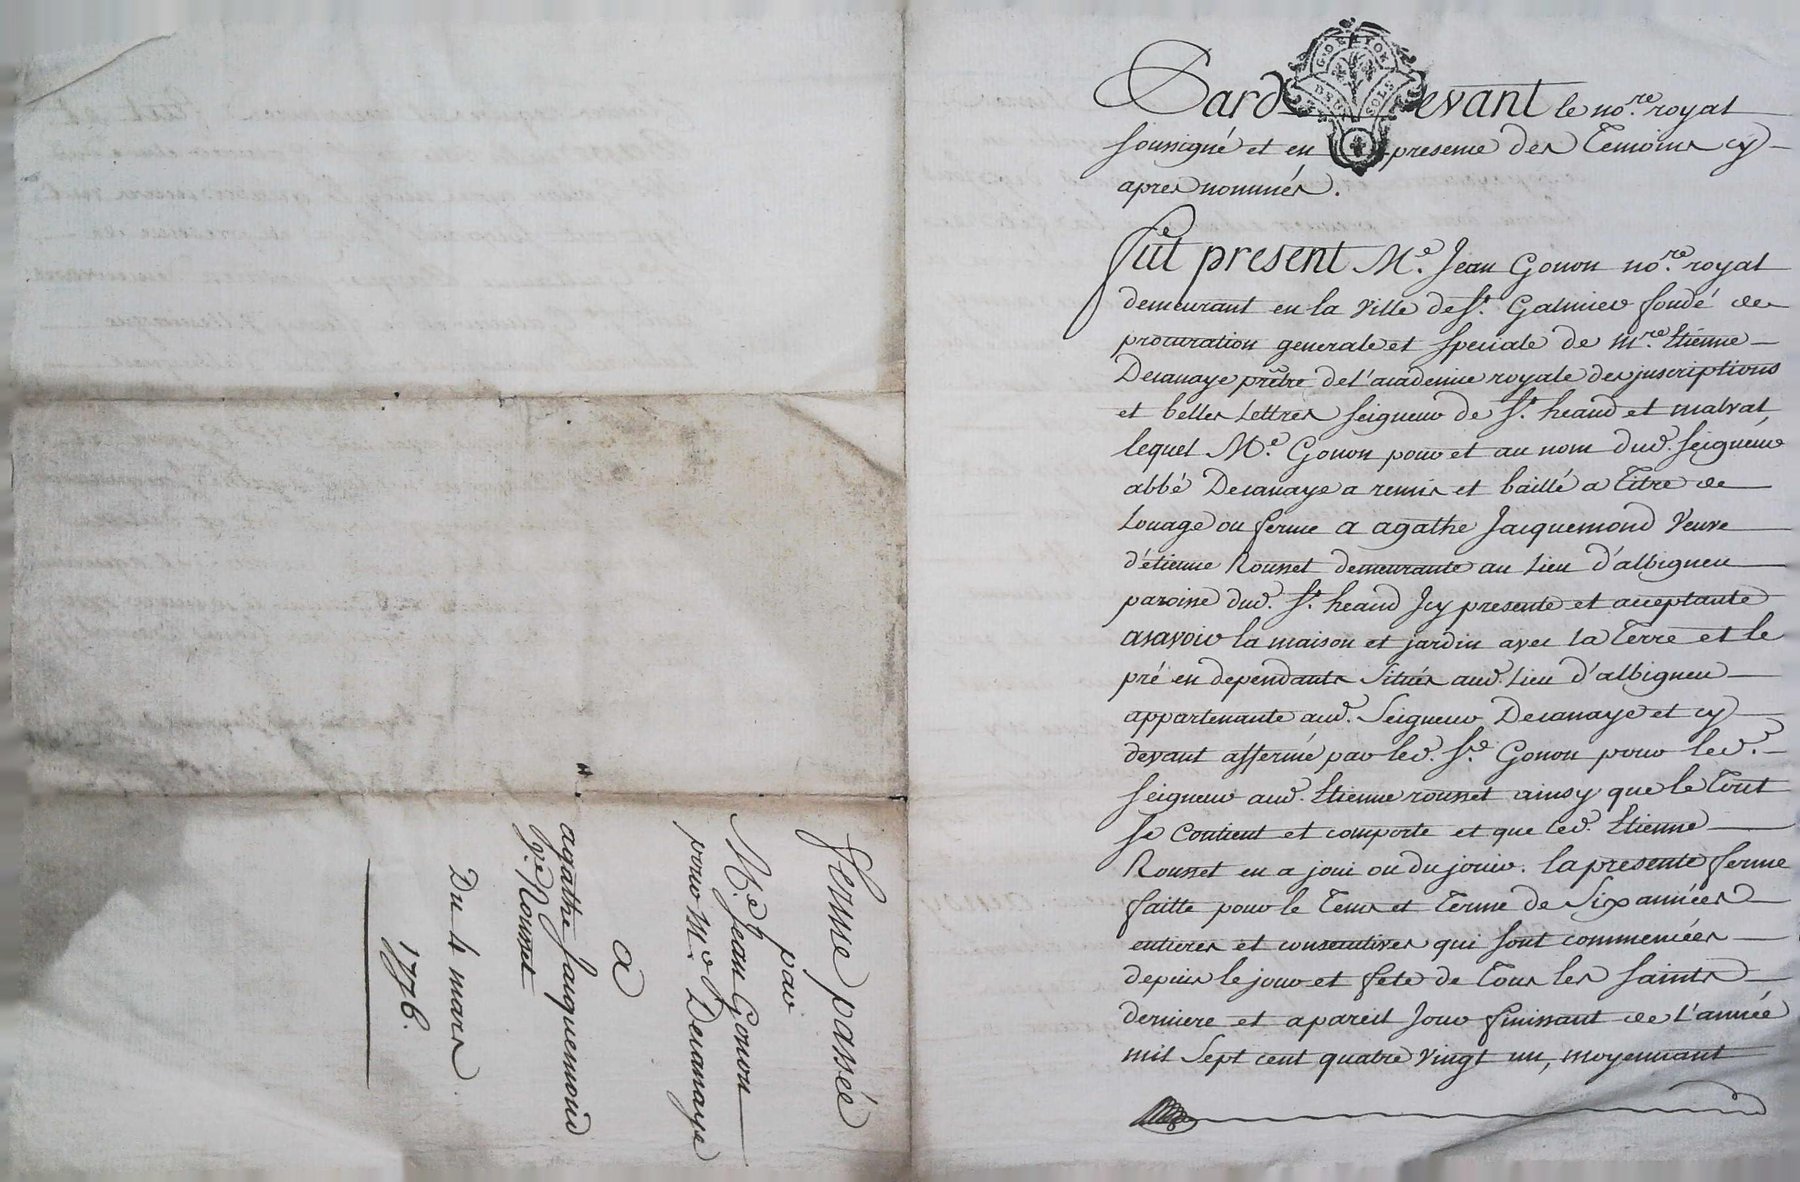 Pard evant le no.re royal
soussigné et en presence des Temoins cy
apres nommés.
fut present M.e Jean Gonon no.re royal
demeurant en la ville de St. Galmier fondé de
procuration generale et speciale de M.re Etienne
Decanaye prêtre de l'academie royale des inscriptions
et belles Lettres Seigneur de St. heand et malval,
lequel M.e Gonon pour et au nom dud. Seigneur
abbé Decanaye a remis et baillé a Titre de
Louage ou ferme a agathe Jacquemond Veuve
d'étienne Rousset demeurante au Lieu d'albigneu
paroisse dud. St. heand Icy presente et acceptante
asavoir la maison et jardin avec la Terre et le
pré en dependants Situés aud. Lieu d'albigneu
appartenante aud. Seigneur Decanaye et cy
devant affermé par led. Sr. Gonon pour led.
Seigneur aud. Etienne rousset ainsy que le Tout
se Contient et comporte et que led. Etienne
Rousset en a joui ou du jouir. la presente ferme
faitte pour le Tems et Terme de Six années
entieres et consecutives qui sont commencées
depuis le jour et fete de Tous les Saints
derniere et a pareil Jour finissant de L'année
mil Sept cent quatre Vingt un, moyennant
G. DE LYON
DEUX SOLS
ferme passée
par
M.e Jean Gonon
pour M.r Decanaye
a
agathe Jacquemond
v.e Rousset
Du 4 mars
1776.